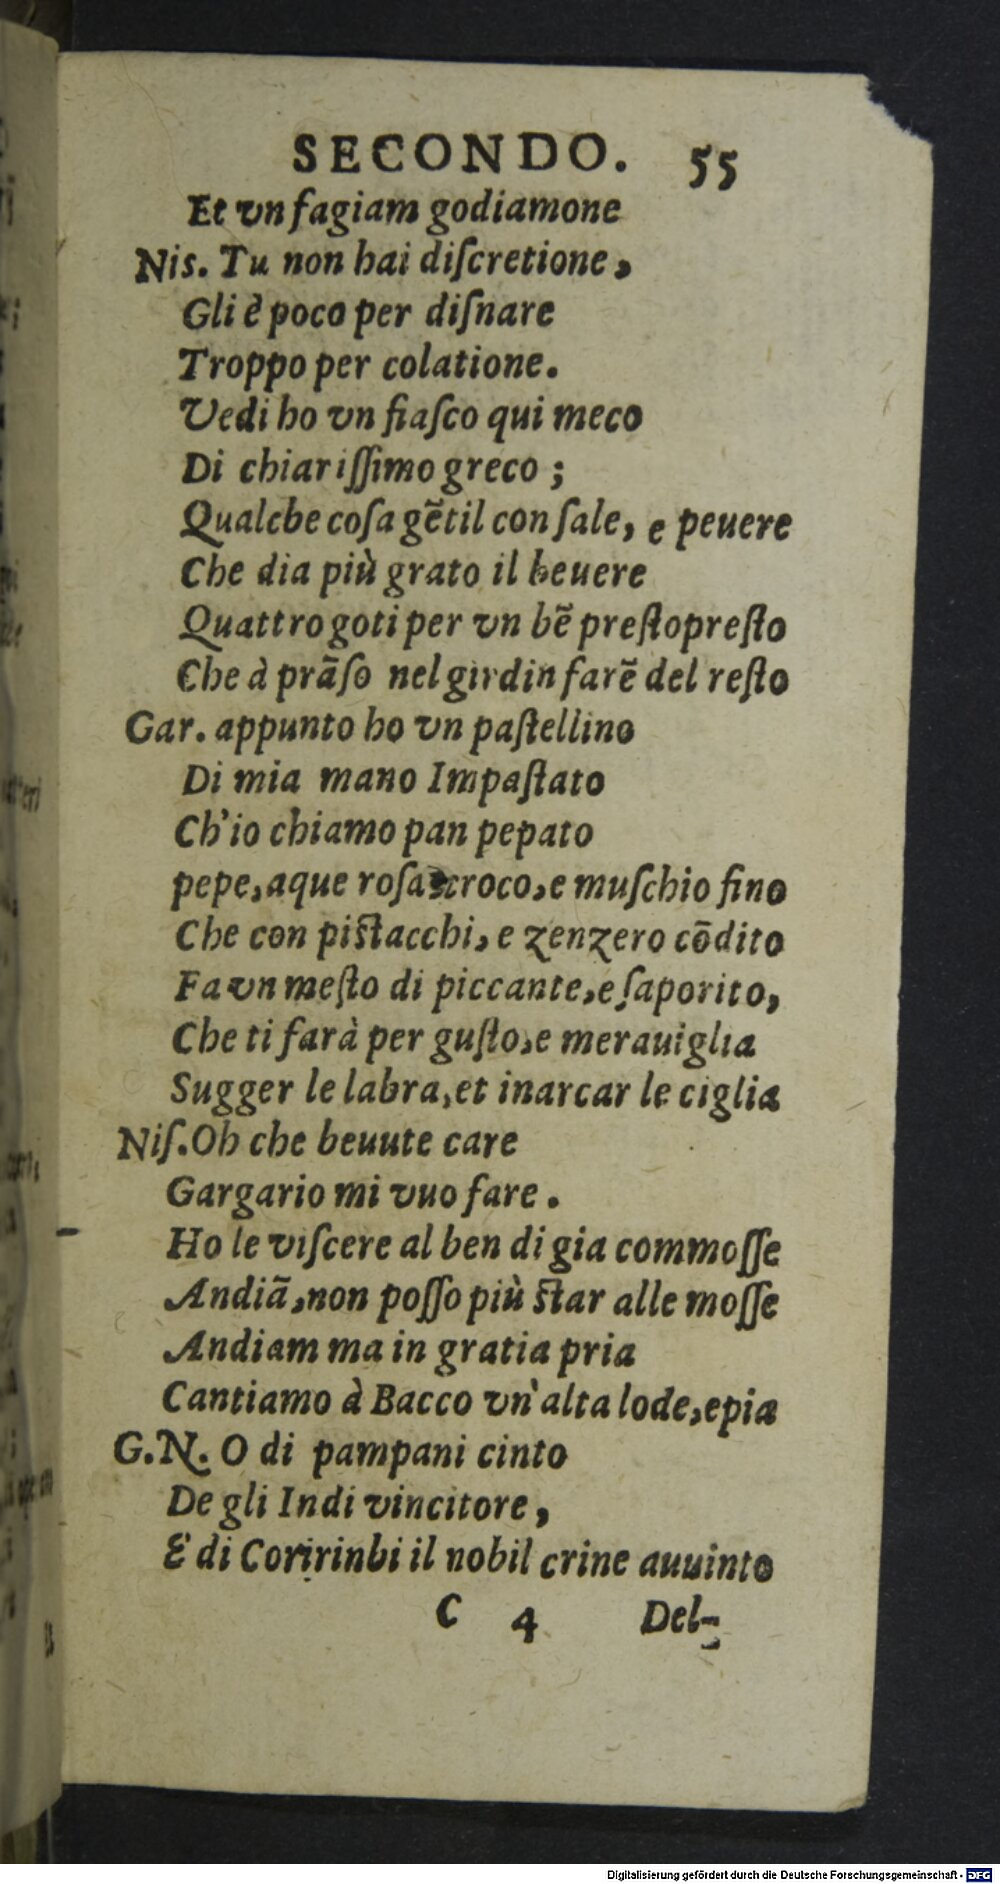 SECONDO. 55
Et vn fagiam godiamone
Nis. Tu non hai diſcretione,
Gli è poco per diſnare
Troppo per colatione.
Vedi ho vn fiaſco qui meco
Di chiariſſimo greco ;
Qualche coſa gẽtil con ſale, e peuere
Che dia più grato il beuere
Quattro goti per vn bẽ preſto preſto
Che à prãſo nel girdin farẽ del reſto
Gar. appunto ho vn paſtellino
Di mia mano Impaſtato
Ch'io chiamo pan pepato
pepe, aque roſa croco, e muſchio fino
Che con piſtacchi, e zenzero cõdito
Fa vn meſto di piccante, e ſaporito,
Che ti farà per guſto, e merauiglia
Sugger le labra, et inarcar le ciglia
Niſ. Oh che beuute care
Gargario mi vuo fare .
Ho le viſcere al ben di gia commoſſe
Andiã, non poſſo più ſtar alle moſſe
Andiam ma in gratia pria
Cantiamo à Bacco vn' alta lode, e pia
G.N. O di pampani cinto
De gli Indi vincitore,
E' di Coririnbi il nobil crine auuinto
C 4 Del-
Digitalisierung gefördert durch die Deutsche Forschungsgemeinschaft - DFG